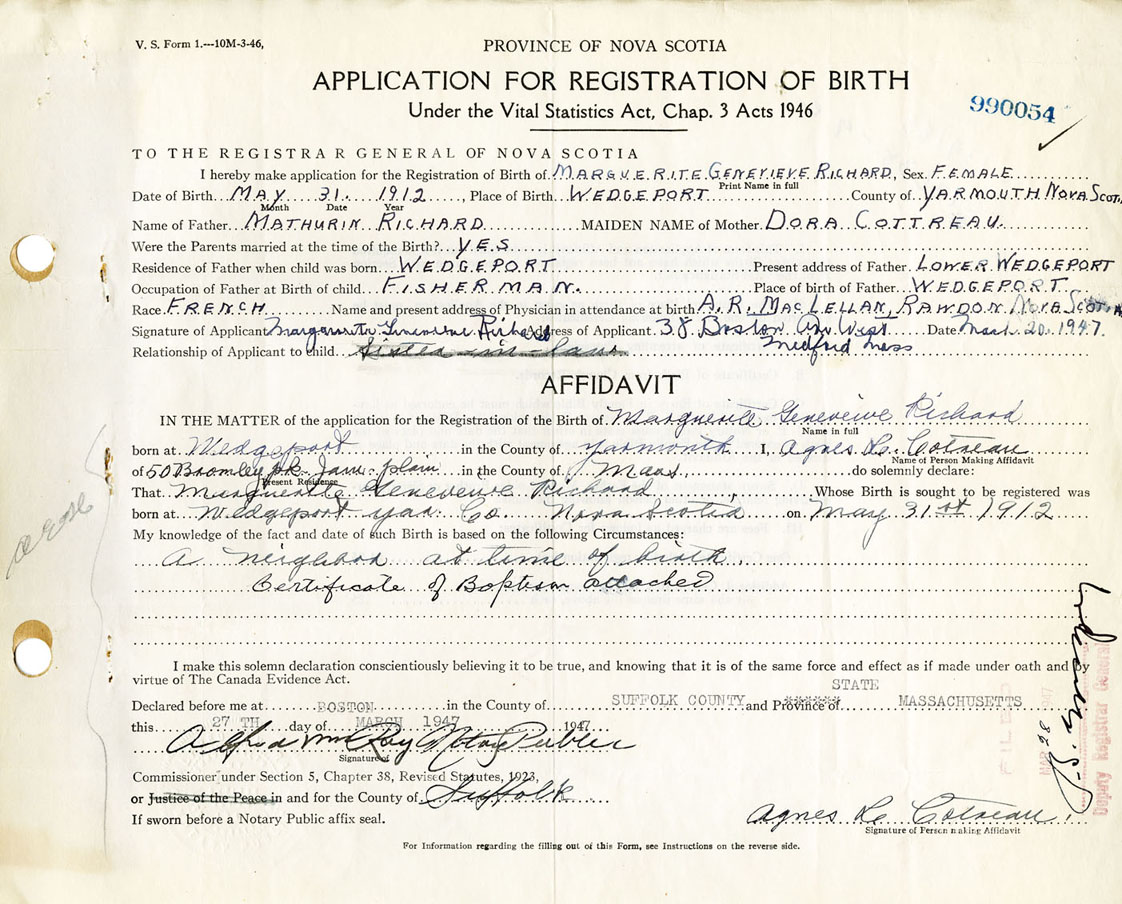 V. S. Form 1.---10M-3-46,
PROVINCE OF NOVA SCOTIA
APPLICATION FOR REGISTRATION OF BIRTH
Under the Vital Statistics Act, Chap. 3 Acts 1946
990054
TO THE REGISTRAR GENERAL OF NOVA SCOTIA
I hereby make application for the Registration of Birth of MARGUERITE GENEVIEVE RICHARD, Sex FEMALE
Print Name in full
Date of Birth MAY 31. 1912, Place of Birth WEDGEPORT County of YARMOUTH NOVA SCOT
Month Date Year
Name of Father MATHURIN RICHARD MAIDEN NAME of Mother DORA COTTREAU.
Were the Parents married at the time of the Birth? YES
Residence of Father when child was born WEDGEPORT Present address of Father LOWER WEDGEPORT
Occupation of Father at Birth of child FISHERMAN. Place of birth of Father WEDGEPORT.
Race FRENCH Name and present address of Physician in attendance at birth A. R. MACLELLAN, RAWDON, NOVA SCOT
Signature of Applicant Richard Address of Applicant 38 Boston Av West Date 20. 1947.
Medford Mass
Relationship of Applicant to child Sister-in-law
AFFIDAVIT
IN THE MATTER of the application for the Registration of the Birth of Marguerite Geneveive Richard
Name in full
born at Wedgeport in the County of Yarmouth I, Agnes L. Cotreau
Name of Person Making Affidavit
of 50 Bromley pk. Jam. plain in the County of Mass. do solemnly declare:
Present Residence
That Marguerite Geneveive Richard, Whose Birth is sought to be registered was
born at Wedgeport Yar Co. Nova Scotia on May 31st 1912
My knowledge of the fact and date of such Birth is based on the following Circumstances:
A neighbor at time of birth.
Certificate of Baptism attached
I make this solemn declaration conscientiously believing it to be true, and knowing that it is of the same force and effect as if made under oath and by
virtue of The Canada Evidence Act.
STATE
Declared before me at BOSTON in the County of SUFFOLK COUNTY and Province of MASSACHUSETTS
this 27 TH day of MARCH 1947 1947
Notary Public
Signature of
Commissioner under Section 5, Chapter 38, Revised Statutes, 1923,
or Justice of the Peace in and for the County of Suffolk
If sworn before a Notary Public affix seal.
Agnes L. Cotreau
Signature of Person making Affidavit
For Information regarding the filling out of this Form, see Instructions on the reverse side.
Deputy Registrar General